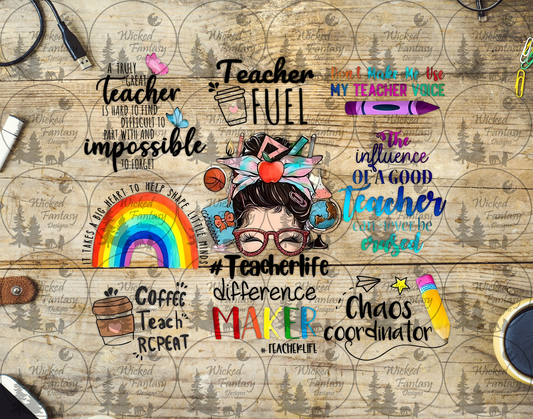 Wicked
Fantasy
Designs
A TRULY
GREAT
teacher
IS HARD TO FIND
DIFFICULT TO
PART WITH AND
impossible
TO FORGET
Teacher
FUEL
Don't Make Me Use
MY TEACHER VOICE
The
influence
OF A GOOD
Teacher
can never be
erased
IT TAKES A BIG HEART TO HELP SHAPE LITTLE MINDS
#Teacherlife
difference
MAKER
#TEACHERLIFE
COFFEE
Teach
REPEAT
Chaos
coordinator